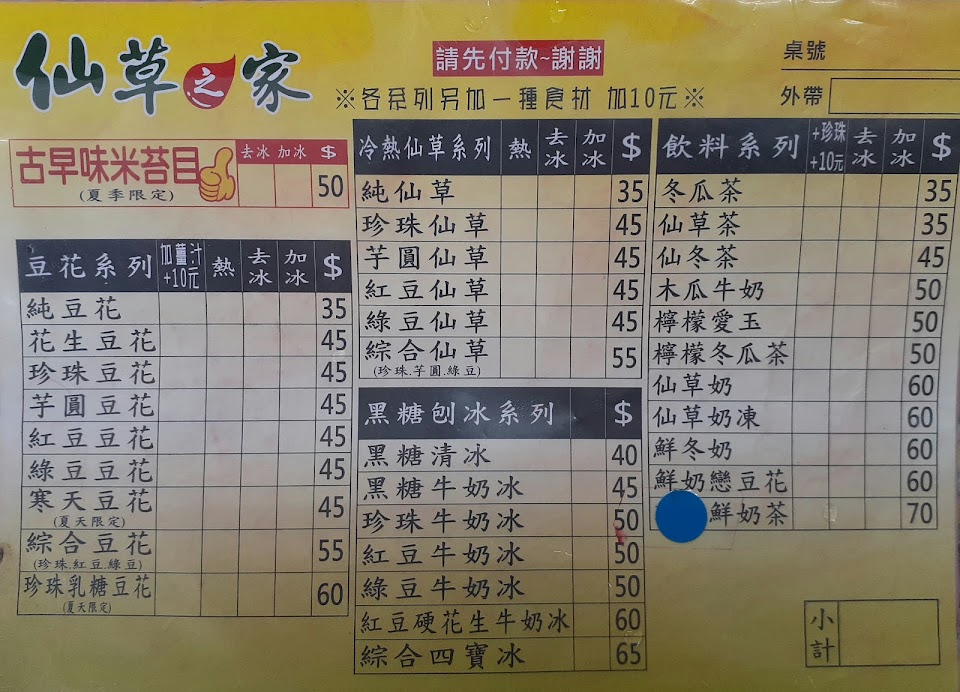 仙草之家
請先付款~謝謝
※各系列另加一種食材 加10元※
桌號
外帶
古早味米苔目 去冰 加冰 $
(夏季限定) 50
豆花系列 加薑汁+10元 熱 去冰 加冰 $
純豆花 35
花生豆花 45
珍珠豆花 45
芋圓豆花 45
紅豆豆花 45
綠豆豆花 45
寒天豆花 45
(夏天限定)
綜合豆花 55
(珍珠.紅豆.綠豆)
珍珠乳糖豆花 60
(夏天限定)
冷熱仙草系列 熱 去冰 加冰 $
純仙草 35
珍珠仙草 45
芋圓仙草 45
紅豆仙草 45
綠豆仙草 45
綜合仙草 55
(珍珠.芋圓.綠豆)
黑糖刨冰系列 $
黑糖清冰 40
黑糖牛奶冰 45
珍珠牛奶冰 50
紅豆牛奶冰 50
綠豆牛奶冰 50
紅豆硬花生牛奶冰 60
綜合四寶冰 65
飲料系列 +珍珠+10元 去冰 加冰 $
冬瓜茶 35
仙草茶 35
仙冬茶 45
木瓜牛奶 50
檸檬愛玉 50
檸檬冬瓜茶 50
仙草奶 60
仙草奶凍 60
鮮冬奶 60
鮮奶戀豆花 60
鮮奶茶 70
小計